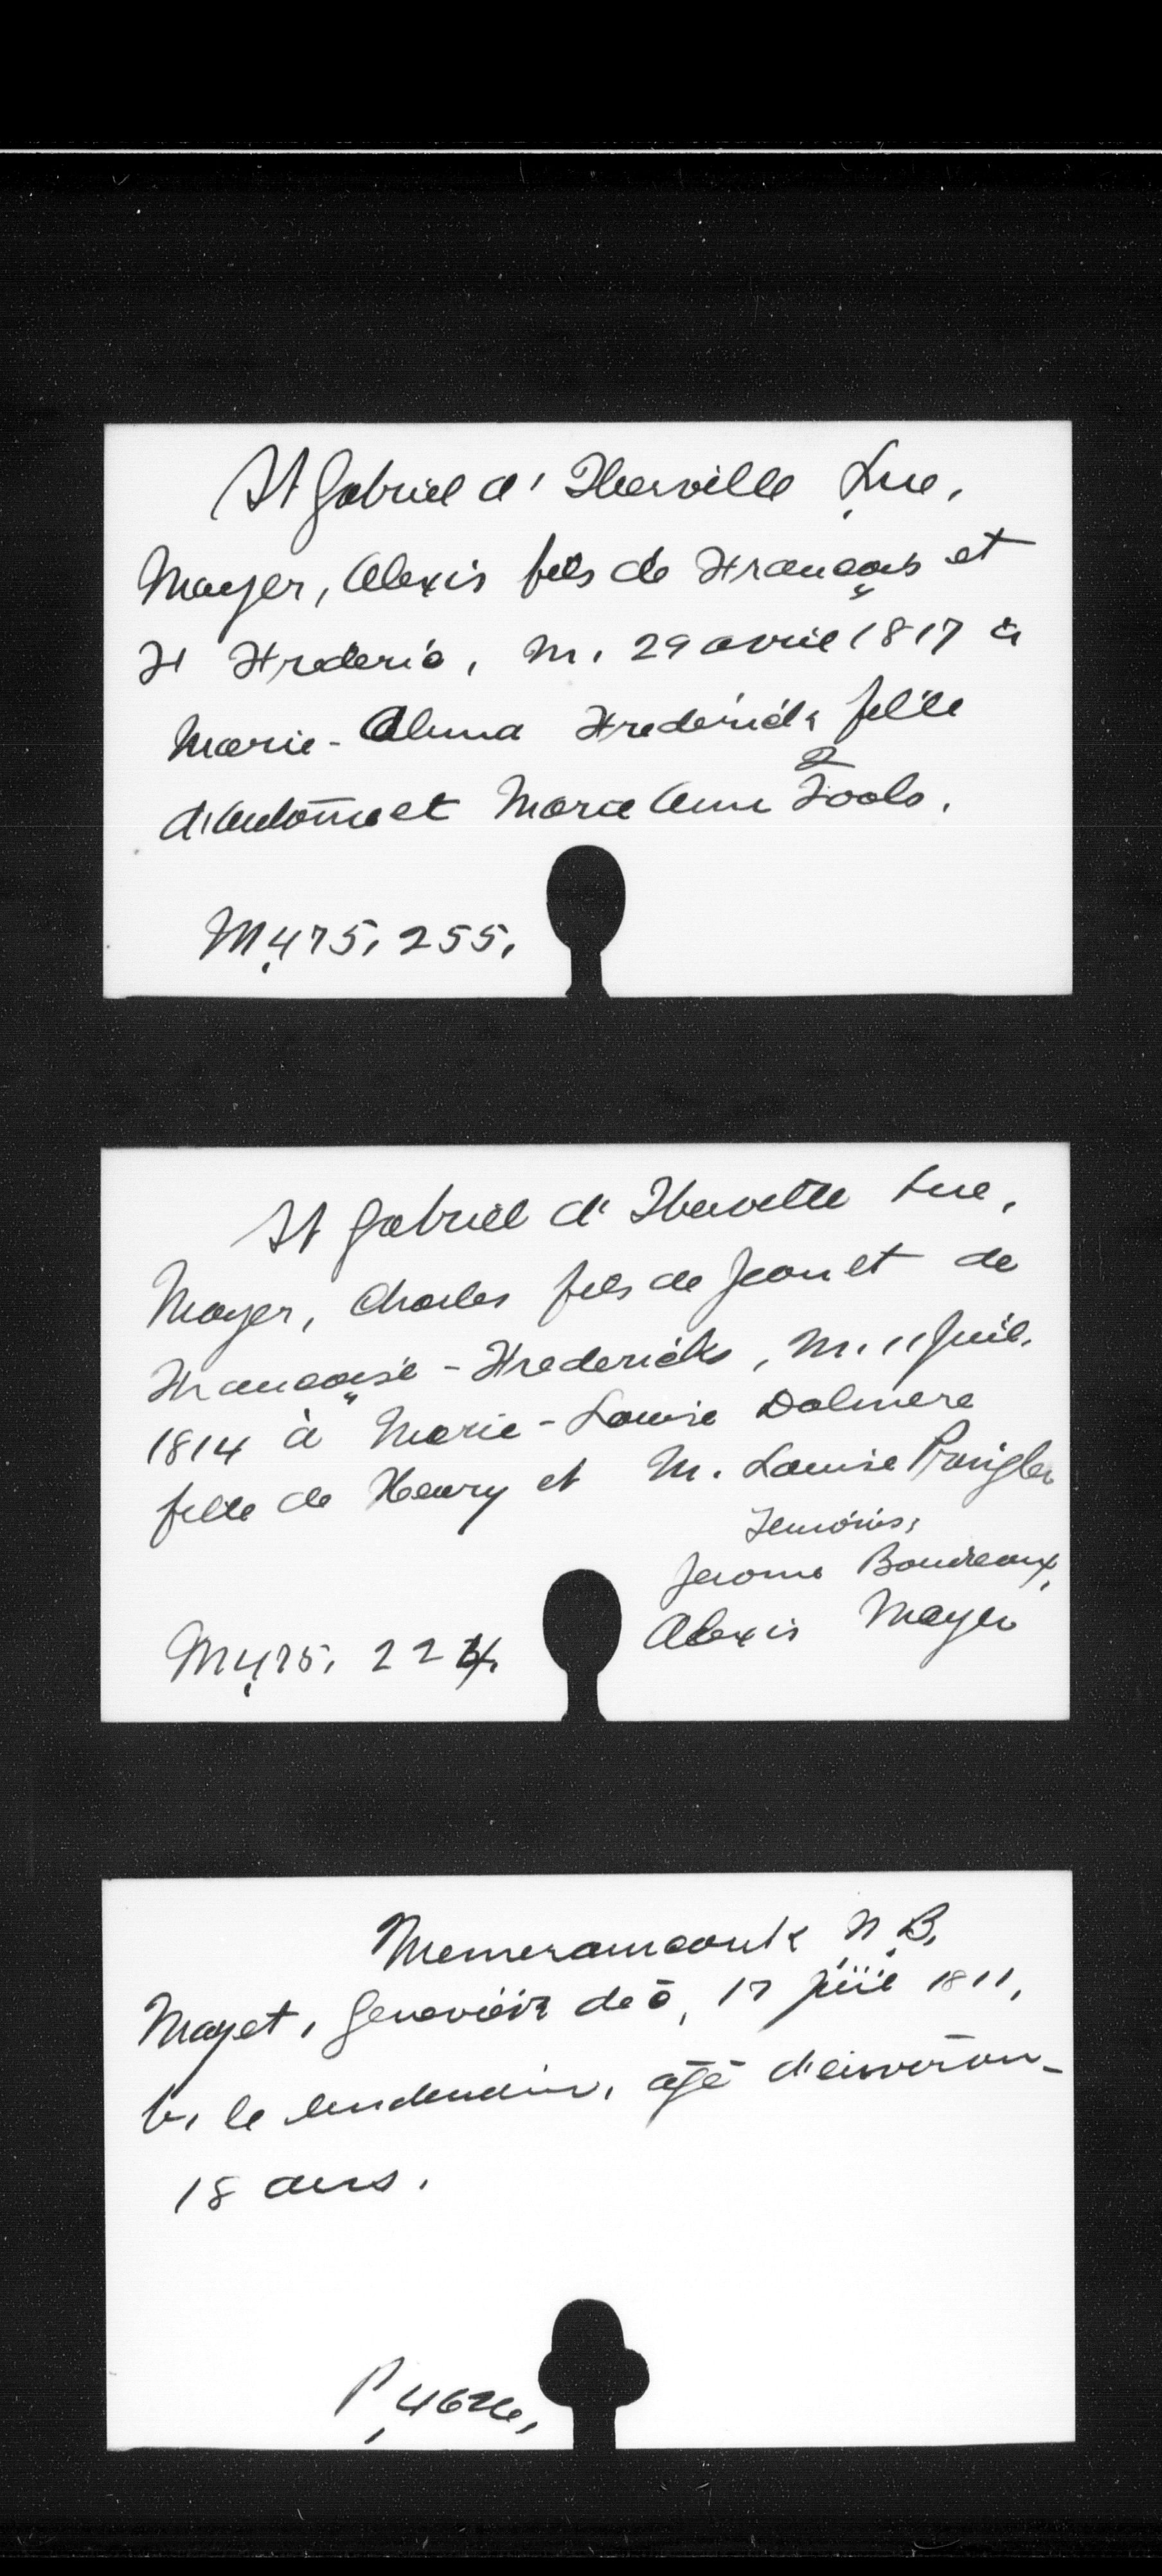 St Gabriel d'Iberville Lne,
Mayer, Alexis fils de François et
F Frederic, m. 29 avril 1817 à
Marie-Anna Frederick fille
d'Antoine et Marie Ann
M,475, 255,
St Gabriel d'Iberville Lne,
Mayer, Charles fils de Jean et de
Françoise-Fredericks, m. 11 Juil.
1814 à Marie-Louise Dolmere
fille de Henry et M. Louise Prngler
Temoins,
Jerome Boudreaux,
Alexis Mayer
M,475, 224,
Memramcook N.B.
Mayet, Genevière déc, 17 juil 1811,
b, le lendemain, agé d'environ-
18 ans.
P,